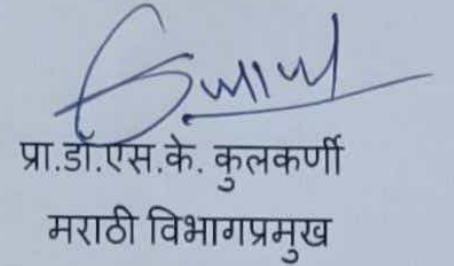 प्रा.डॉ.एस.के. कुलकर्णी
मराठी विभागप्रमुख